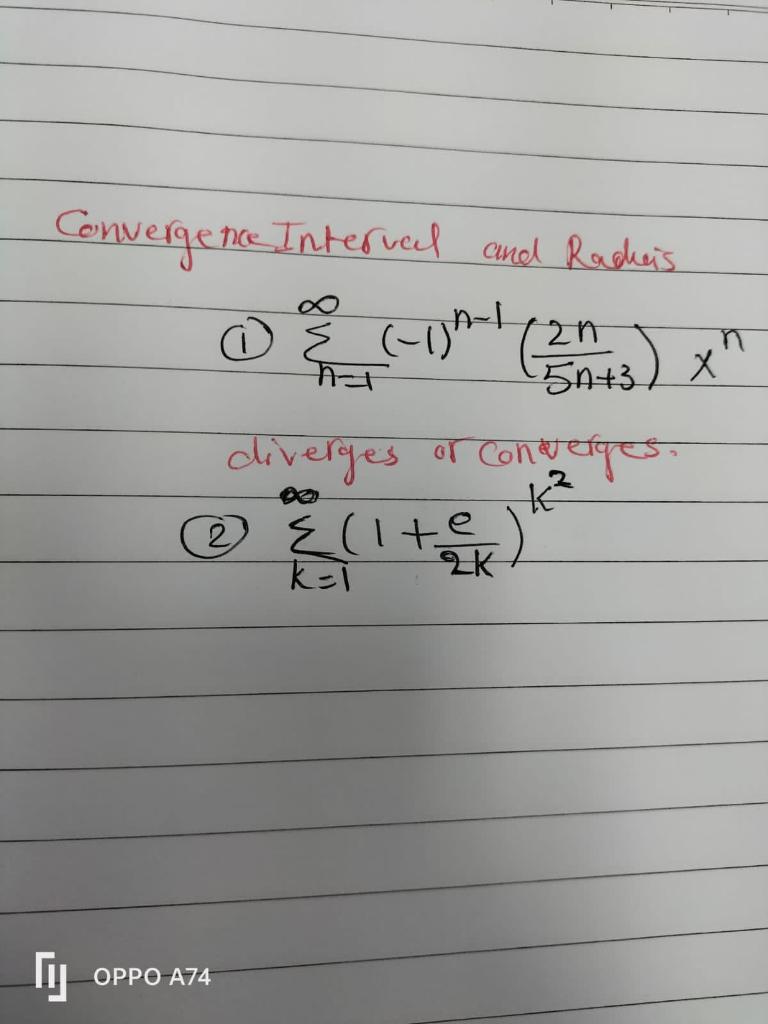 Convergence Interval and Radius
① ∞ Σ n=1 (-1)^n-1 (2n/5n+3) x^n
diverges or converges.
② ∞ Σ k=1 (1 + e/2k)^k^2
OPPO A74